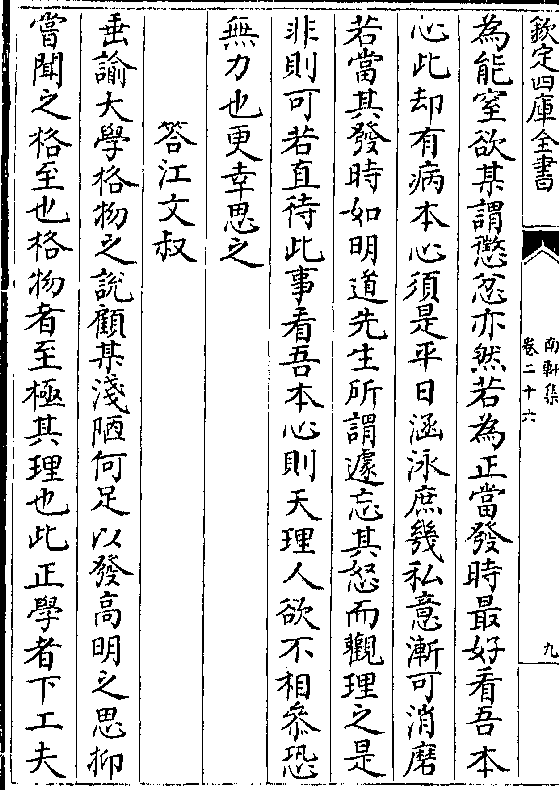 欽定四庫全書
南軒集
卷二十六
九
為能窒欲某謂懲忿亦然若為正當發時最好看吾本
心此却有病本心須是平日涵泳庶幾私意漸可消磨
若當其發時如明道先生所謂遽忘其怒而觀理之是
非則可若直待此事看吾本心則天理人欲不相參恐
無力也更幸思之
答江文叔
垂諭大學格物之說顧某淺陋何足以發高明之思抑
嘗聞之格至也格物者至極其理也此正學者下工夫